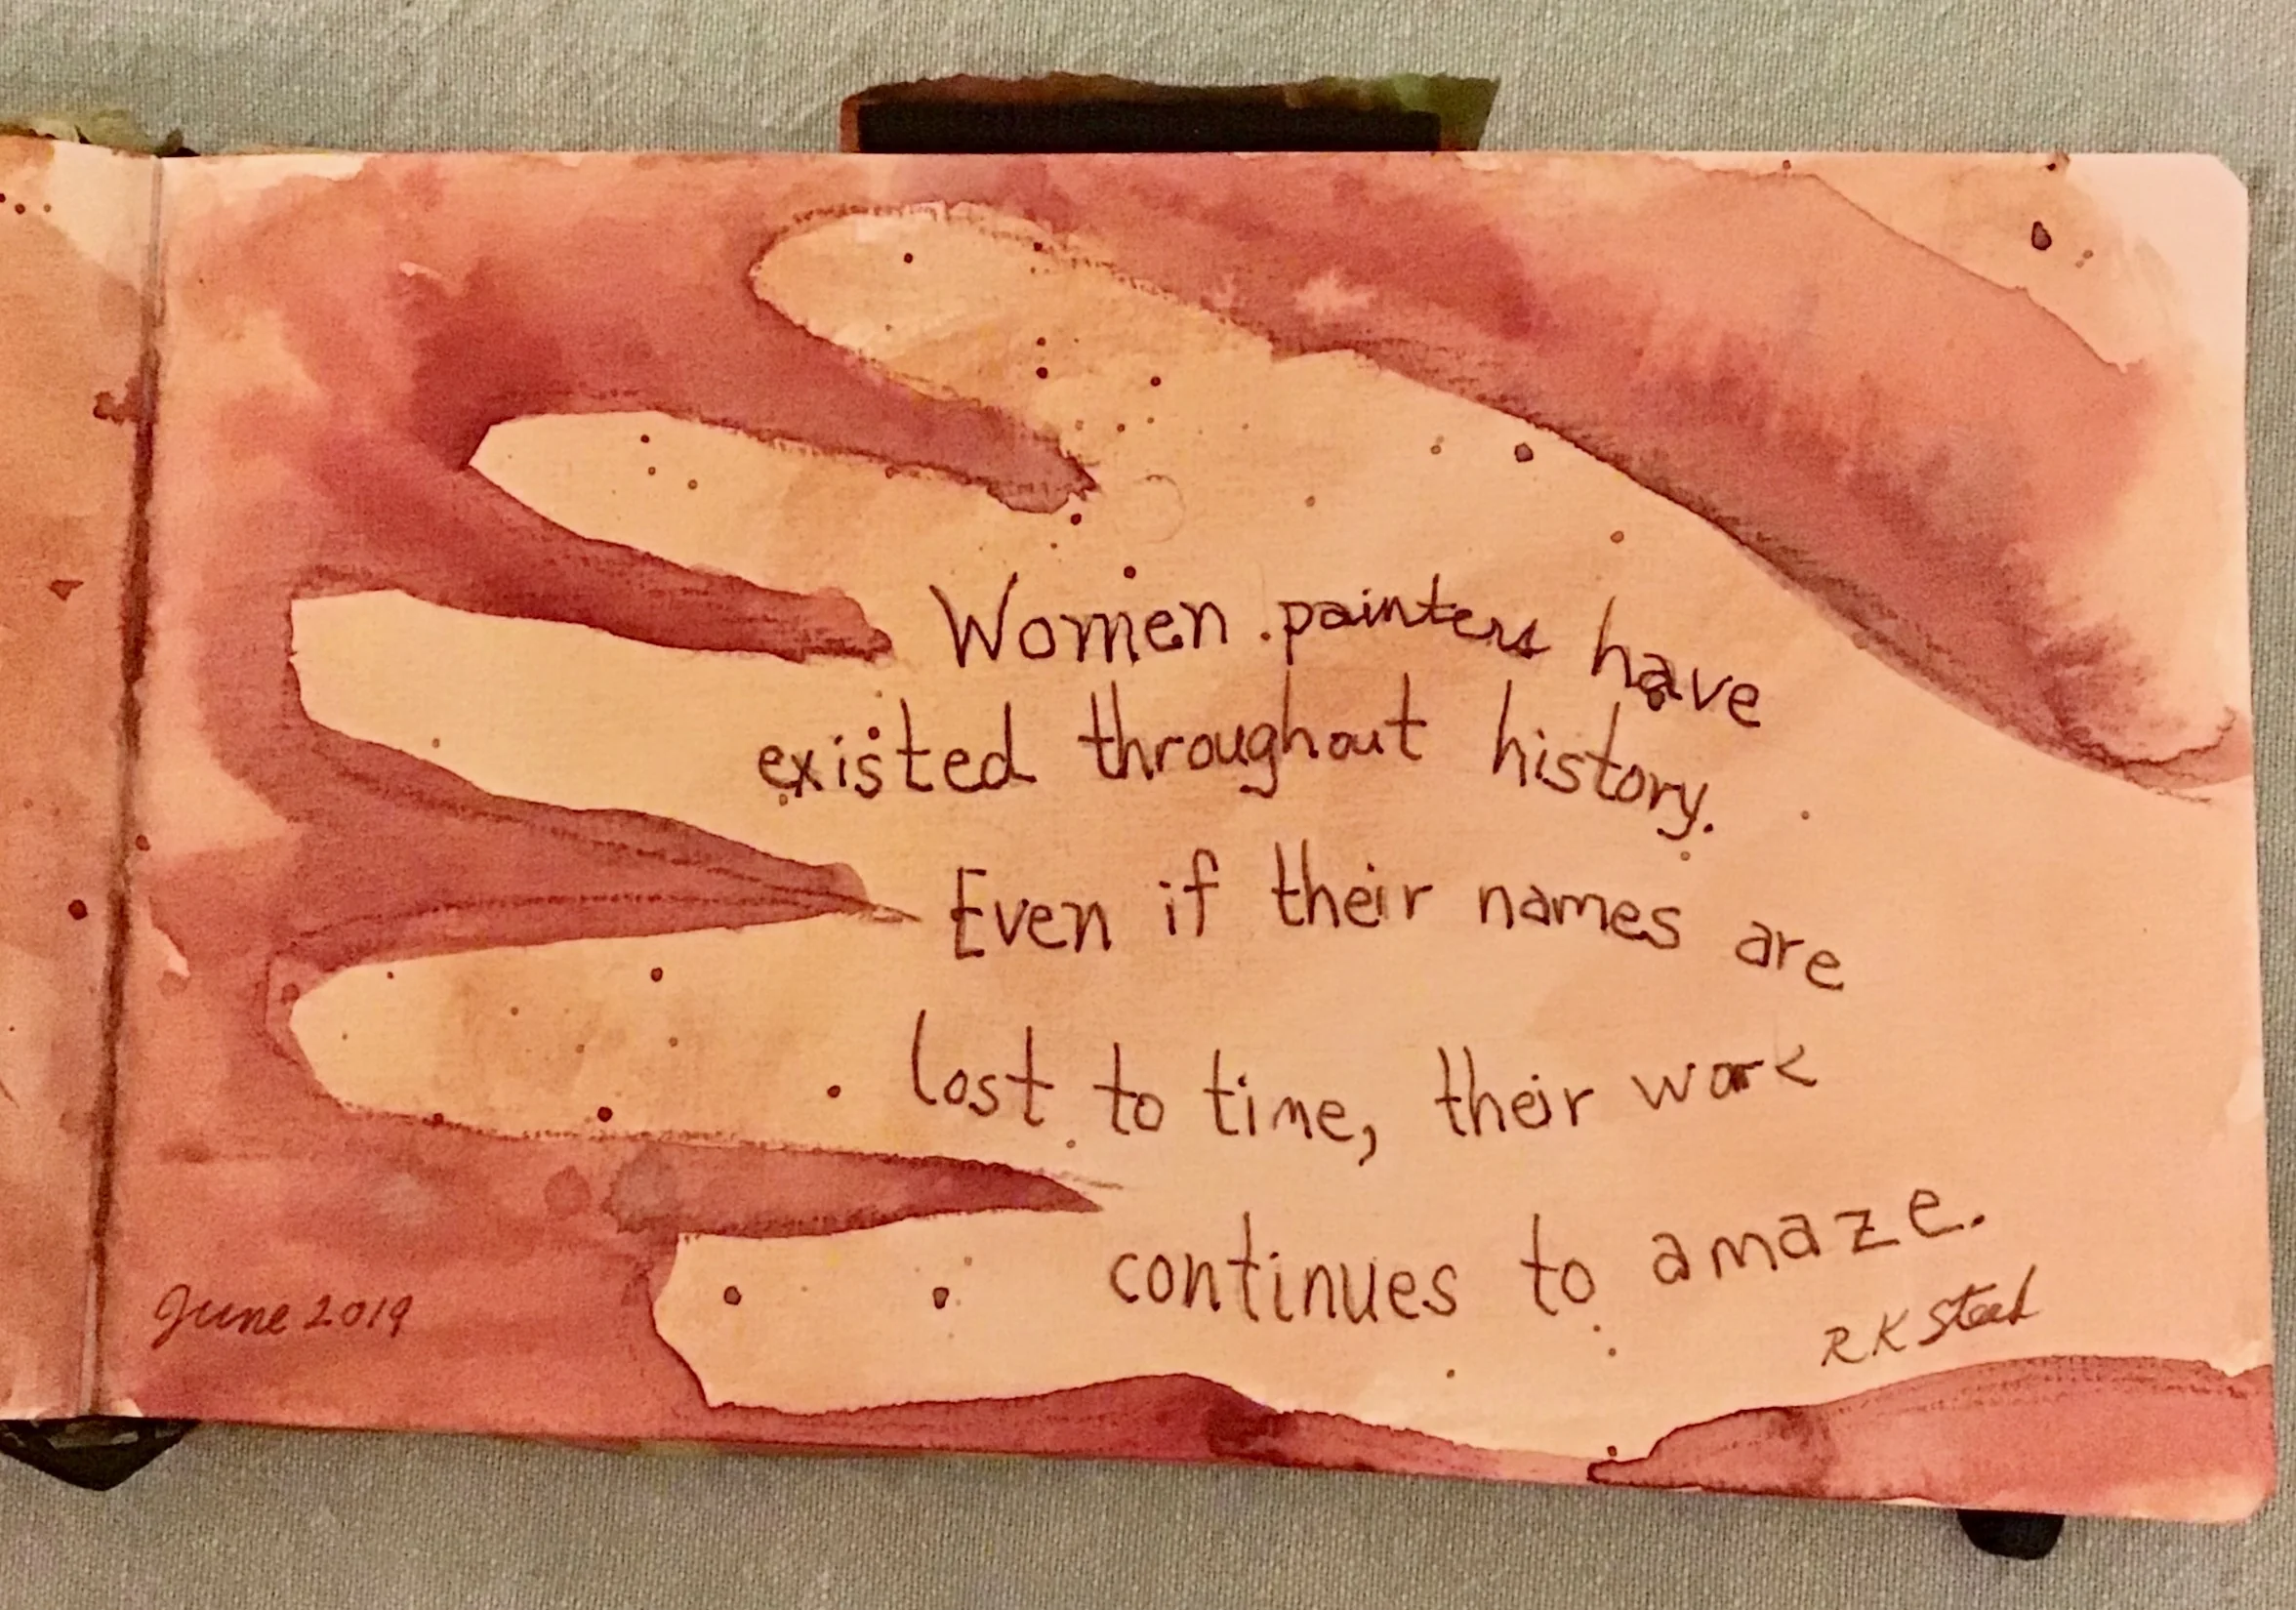 Women painters have
existed throughout history.
Even if their names are
lost to time, their work
continues to amaze.
RK Steel
June 2019